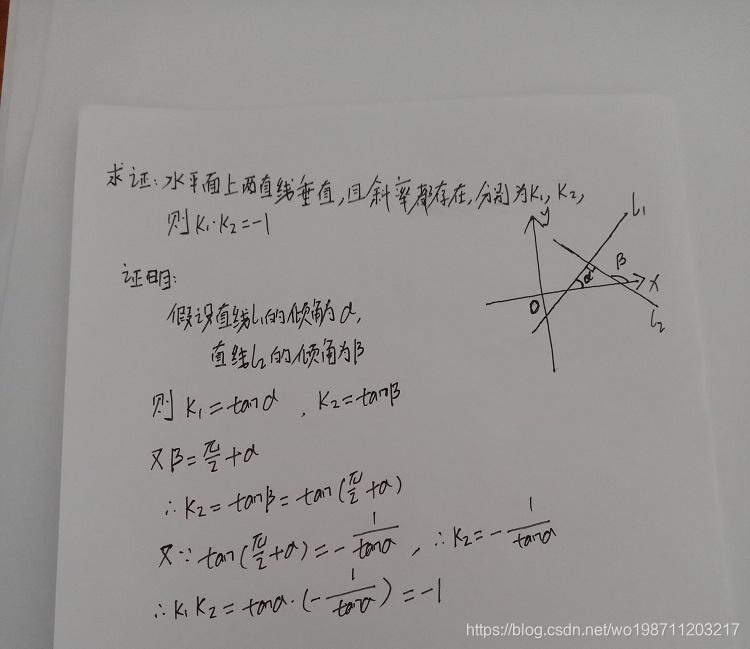 求证:水平面上两直线垂直,且斜率都存在,分别为K₁,K₂,
则K₁·K₂=-1
证明:
假设直线l₁的倾角为α,
直线l₂的倾角为β
则 K₁=tanα , K₂=tanβ
又β=π/2+α
∴K₂=tanβ=tan(π/2+α)
又∵tan(π/2+α)=-1/tanα, ∴K₂=-1/tanα
∴K₁K₂=tanα·(-1/tanα)=-1
y
l₁
β
α
x
O
l₂
https://blog.csdn.net/wo198711203217